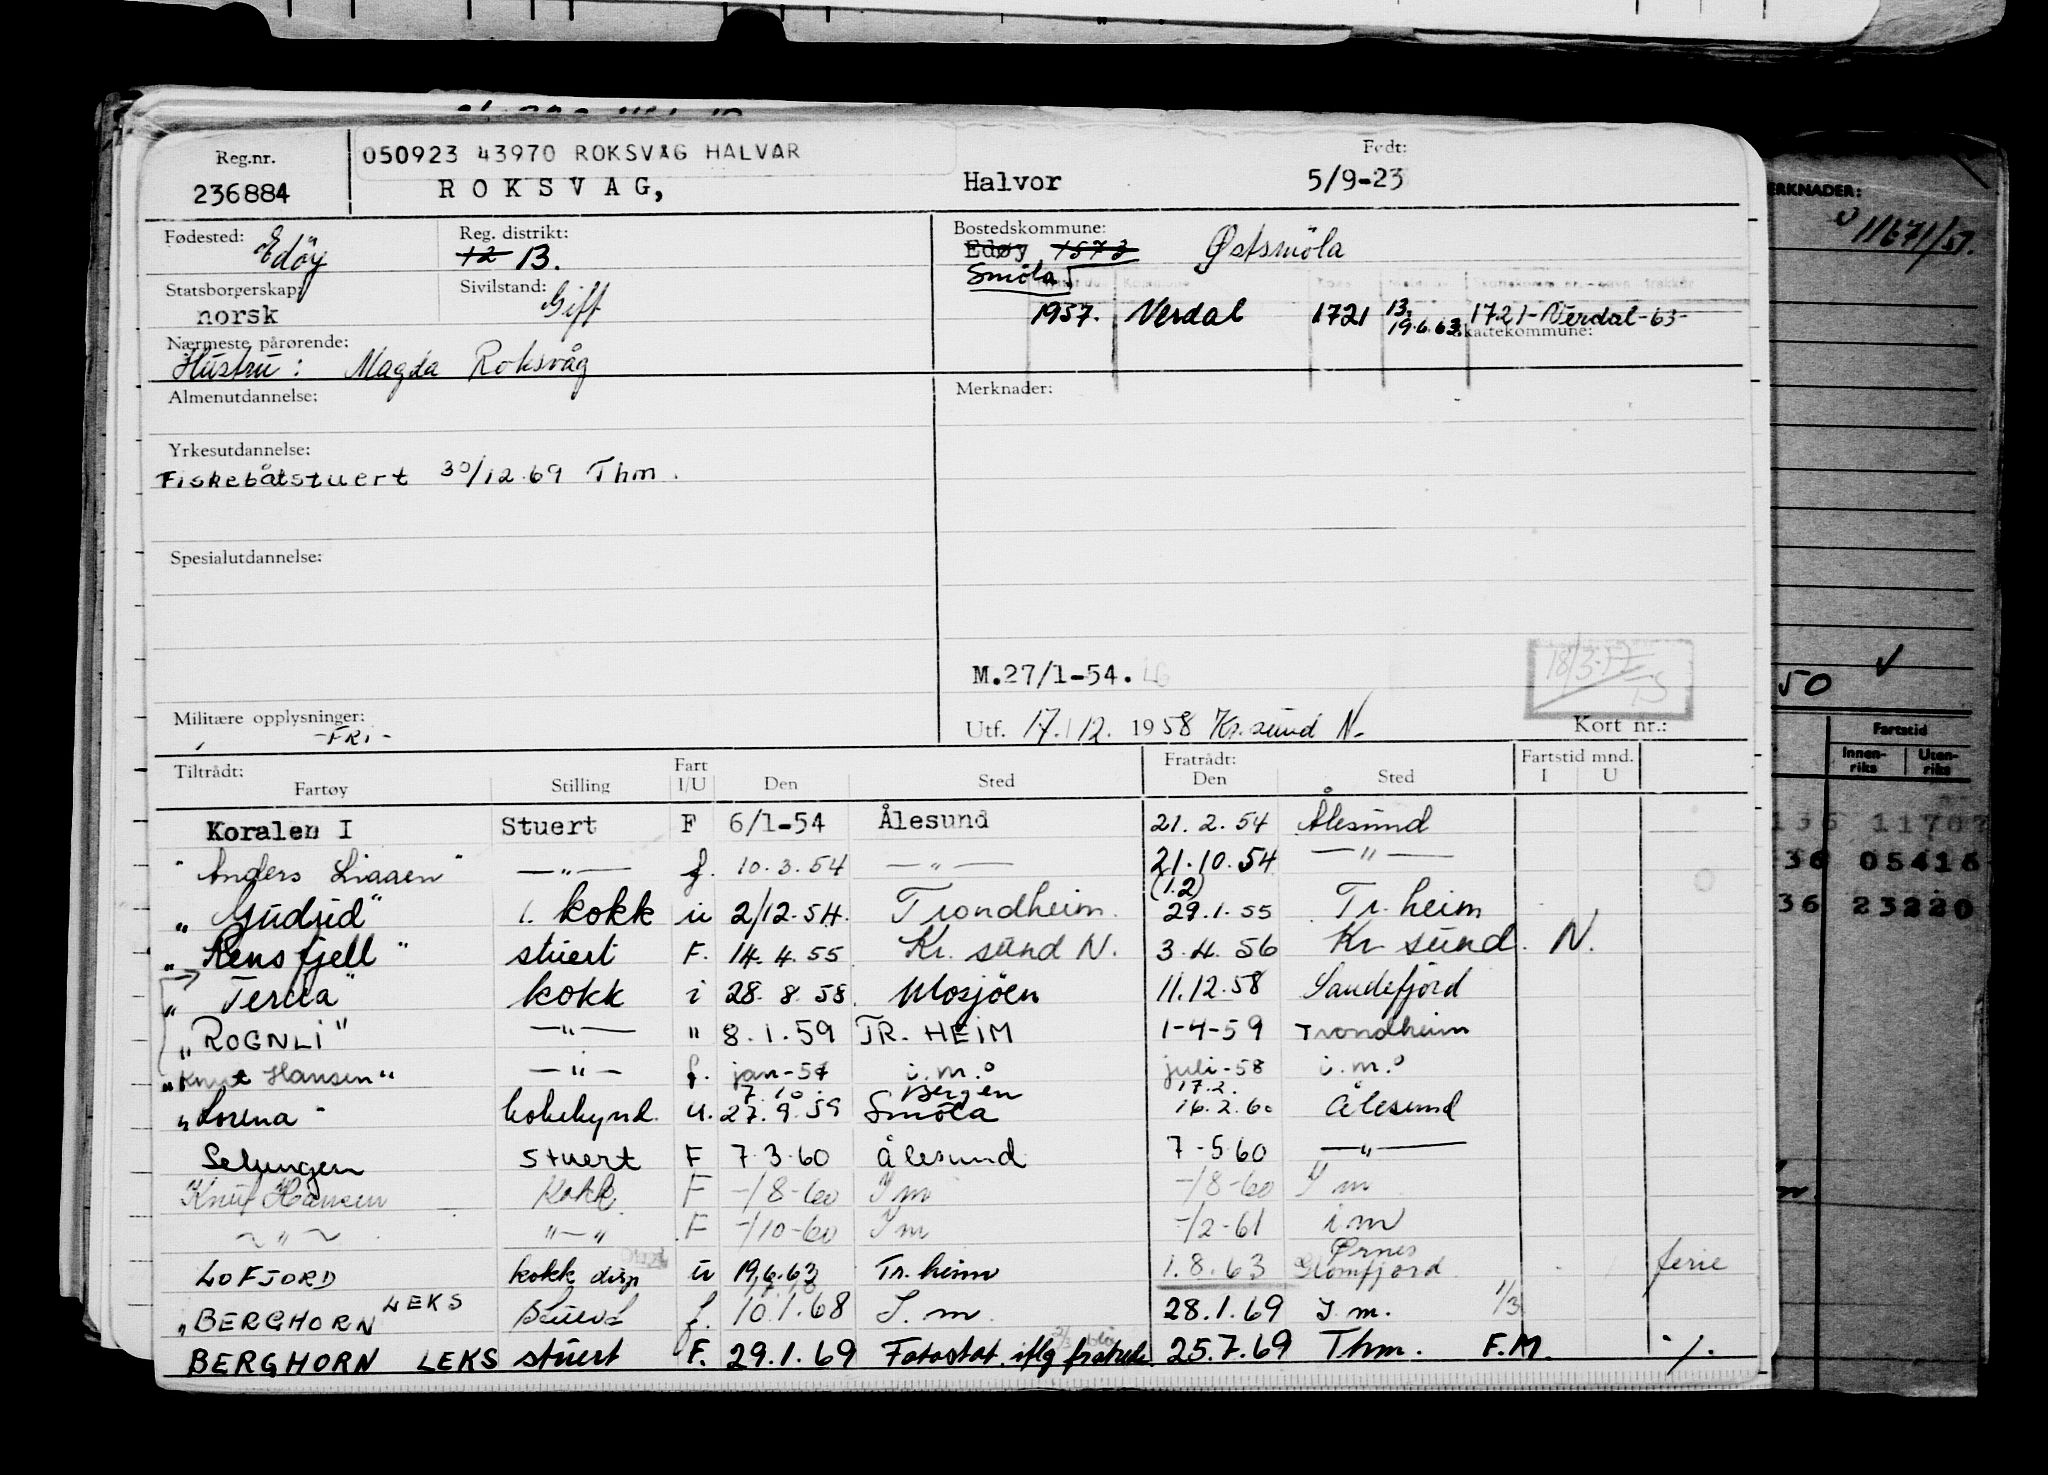 Reg.nr.
236884
050923 43970 ROKSVÅG HALVAR
ROKSVAG,
Halvor
Født:
5/9-23
Fødested: Edöy
Reg. distrikt:
12 13.
Bostedskommune:
Edøy 1573 Østsmöla
Smöla
Statsborgerskap:
norsk
Sivilstand: Gift
1957. Verdal 1721 13. 19.6.63 1721-Verdal-63-
Skattekommune:
Nærmeste pårørende:
Hustru: Magda Roksvåg
Almenutdannelse:
Merknader:
Yrkesutdannelse:
Fiskebåtstuert 30/12.69 Thm.
Spesialutdannelse:
M.27/1-54.
18/3-57
TS
Militære opplysninger:
-FRI-
Utf. 17./12. 1958 Kr.sund N.
Kort nr.:
Tiltrådt: Fart Fratrådt: Fartstid mnd.
Fartøy Stilling I/U Den Sted Den Sted I U
Koralen I Stuert F 6/1-54 Ålesund 21.2.54 Ålesund
"Anders Liaaen" —"— f. 10.3.54 —"— 21.10.54 —"—
(1.2)
"Gudrid" 1. kokk u 2/12.54. Trondheim. 29.1.55 Tr.heim
"Rensfjell" stuert F. 14.4.55 Kr.sund N. 3.4.56 Kr sund. N.
"Terna" kokk i 28.8.58. Mosjöen 11.12.58 Sandefjord
"ROGNLI" —"— " 8.1.59 TR.HEIM 1-4-59 Trondheim
"Knut Hansen" —"— f. jan-57 i.m.o juli-58 i.m.o
7.10. Bergen 17.2.
"Lorena" u. 27.9.59 Smöla 16.2.60 Ålesund
Selungen Stuert F 7.3.60 Ålesund 7-5.60 —"—
Knut Hansen Kokk F -/8-60 I m -/8-60 I m
~"~ "—" F -/10-60 I m -/2-61 i.m
Ørnes
LOFJORD kokk disp u 19.6.63 Tr.heim 1.8.63 Glomfjord ferie
"BERGHORN LEKS Stuert f. 10.1.68 I.m. 28.1.69 I.m. 1/3
BERGHORN LEKS stuert F. 29.1.69 Fotostat iflg fratrede. 25.7.69 Thm. F.M. ·/.
MERKNADER:
11671/51.
50
Fartstid
Innen-riks Uten-riks
136 11707
36 05416
36 23220